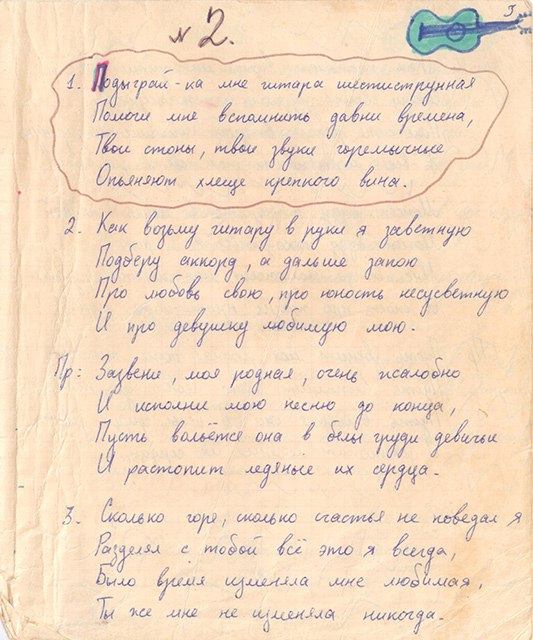 3
№ 2.
1. Подыграй-ка мне гитара шестиструнная
Помоги мне вспомнить давни времена,
Твои стоны, твои звуки горемычные
Опьяняют хлеще крепкого вина.
2. Как возьму гитару в руки я заветную
Подберу аккорд, а дальше запою
Про любовь свою, про юность несусветную
И про девушку любимую мою.
Пр: Зазвени, моя родная, очень жалобно
И исполни мою песню до конца,
Пусть вольётся она в белы груди девичьи
И растопит ледяные их сердца.
3. Сколько горе, сколько счастья не поведал я
Разделял с тобой всё это я всегда,
Было время изменяла мне любимая,
Ты же мне не изменяла никогда.